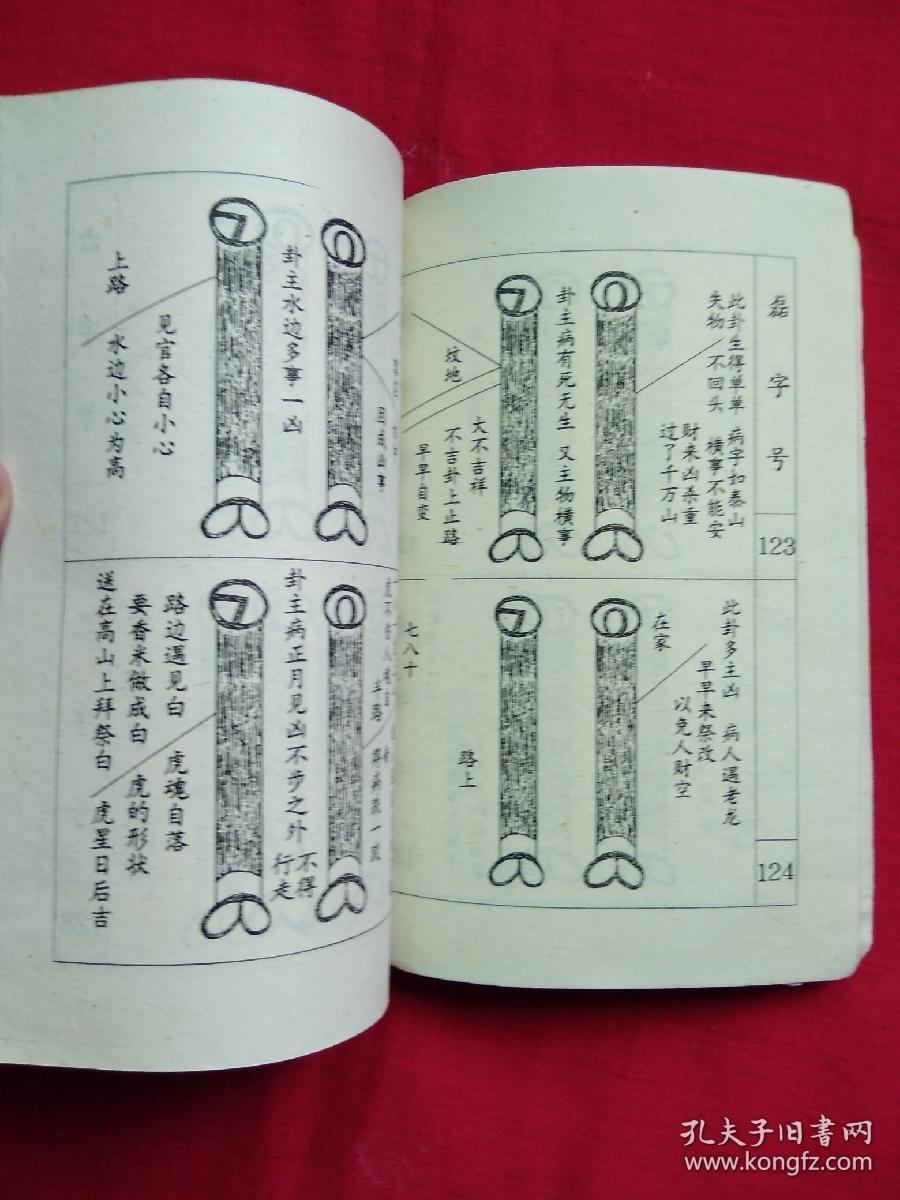 磊字号
123
此卦生得单单 病字如泰山
失物 不回头 横事不能安
财来凶杀重
过了千万山
卦主病有死无生 又主物横事
大不吉祥
坟地 不吉卦上止路
早早自变
卦主水边多事一凶
见官各自小心
上路 水边小心为高
124
此卦多主凶 病人遇老龙
早早来祭改
以免人财空
在家
路上
七八十
卦主病正月见凶不步之外
不得
行走
路边遇见白 虎魂自落
要香米做成白 虎的形状
送在高山上拜祭白 虎星日后吉
孔夫子旧书网
www.kongfz.com